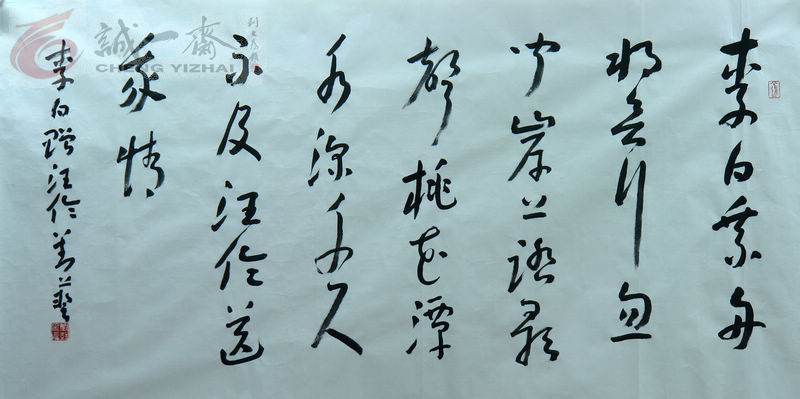 李白乘舟
将欲行忽
闻岸上踏歌
声桃花潭
水深千尺
不及汪伦送
我情
李白赠汪伦
誠一齋
CHENG YIZHAI